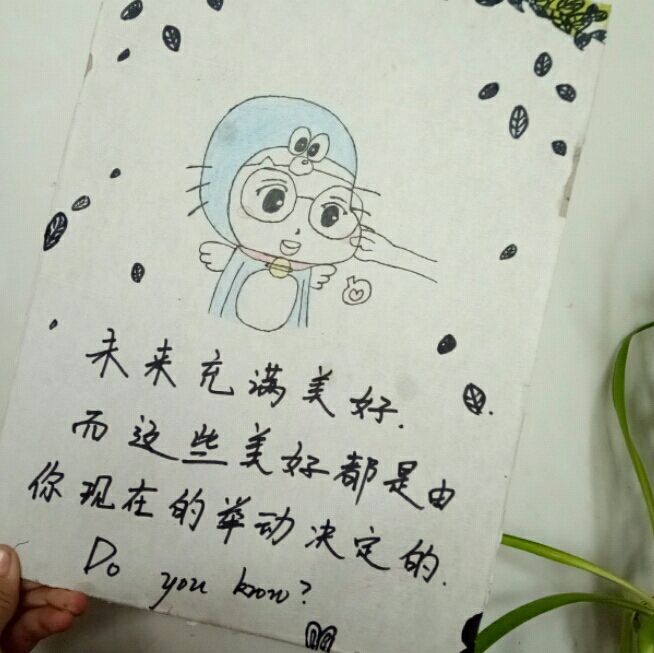 未来充满美好.
而这些美好都是由
你现在的举动决定的.
Do you know?